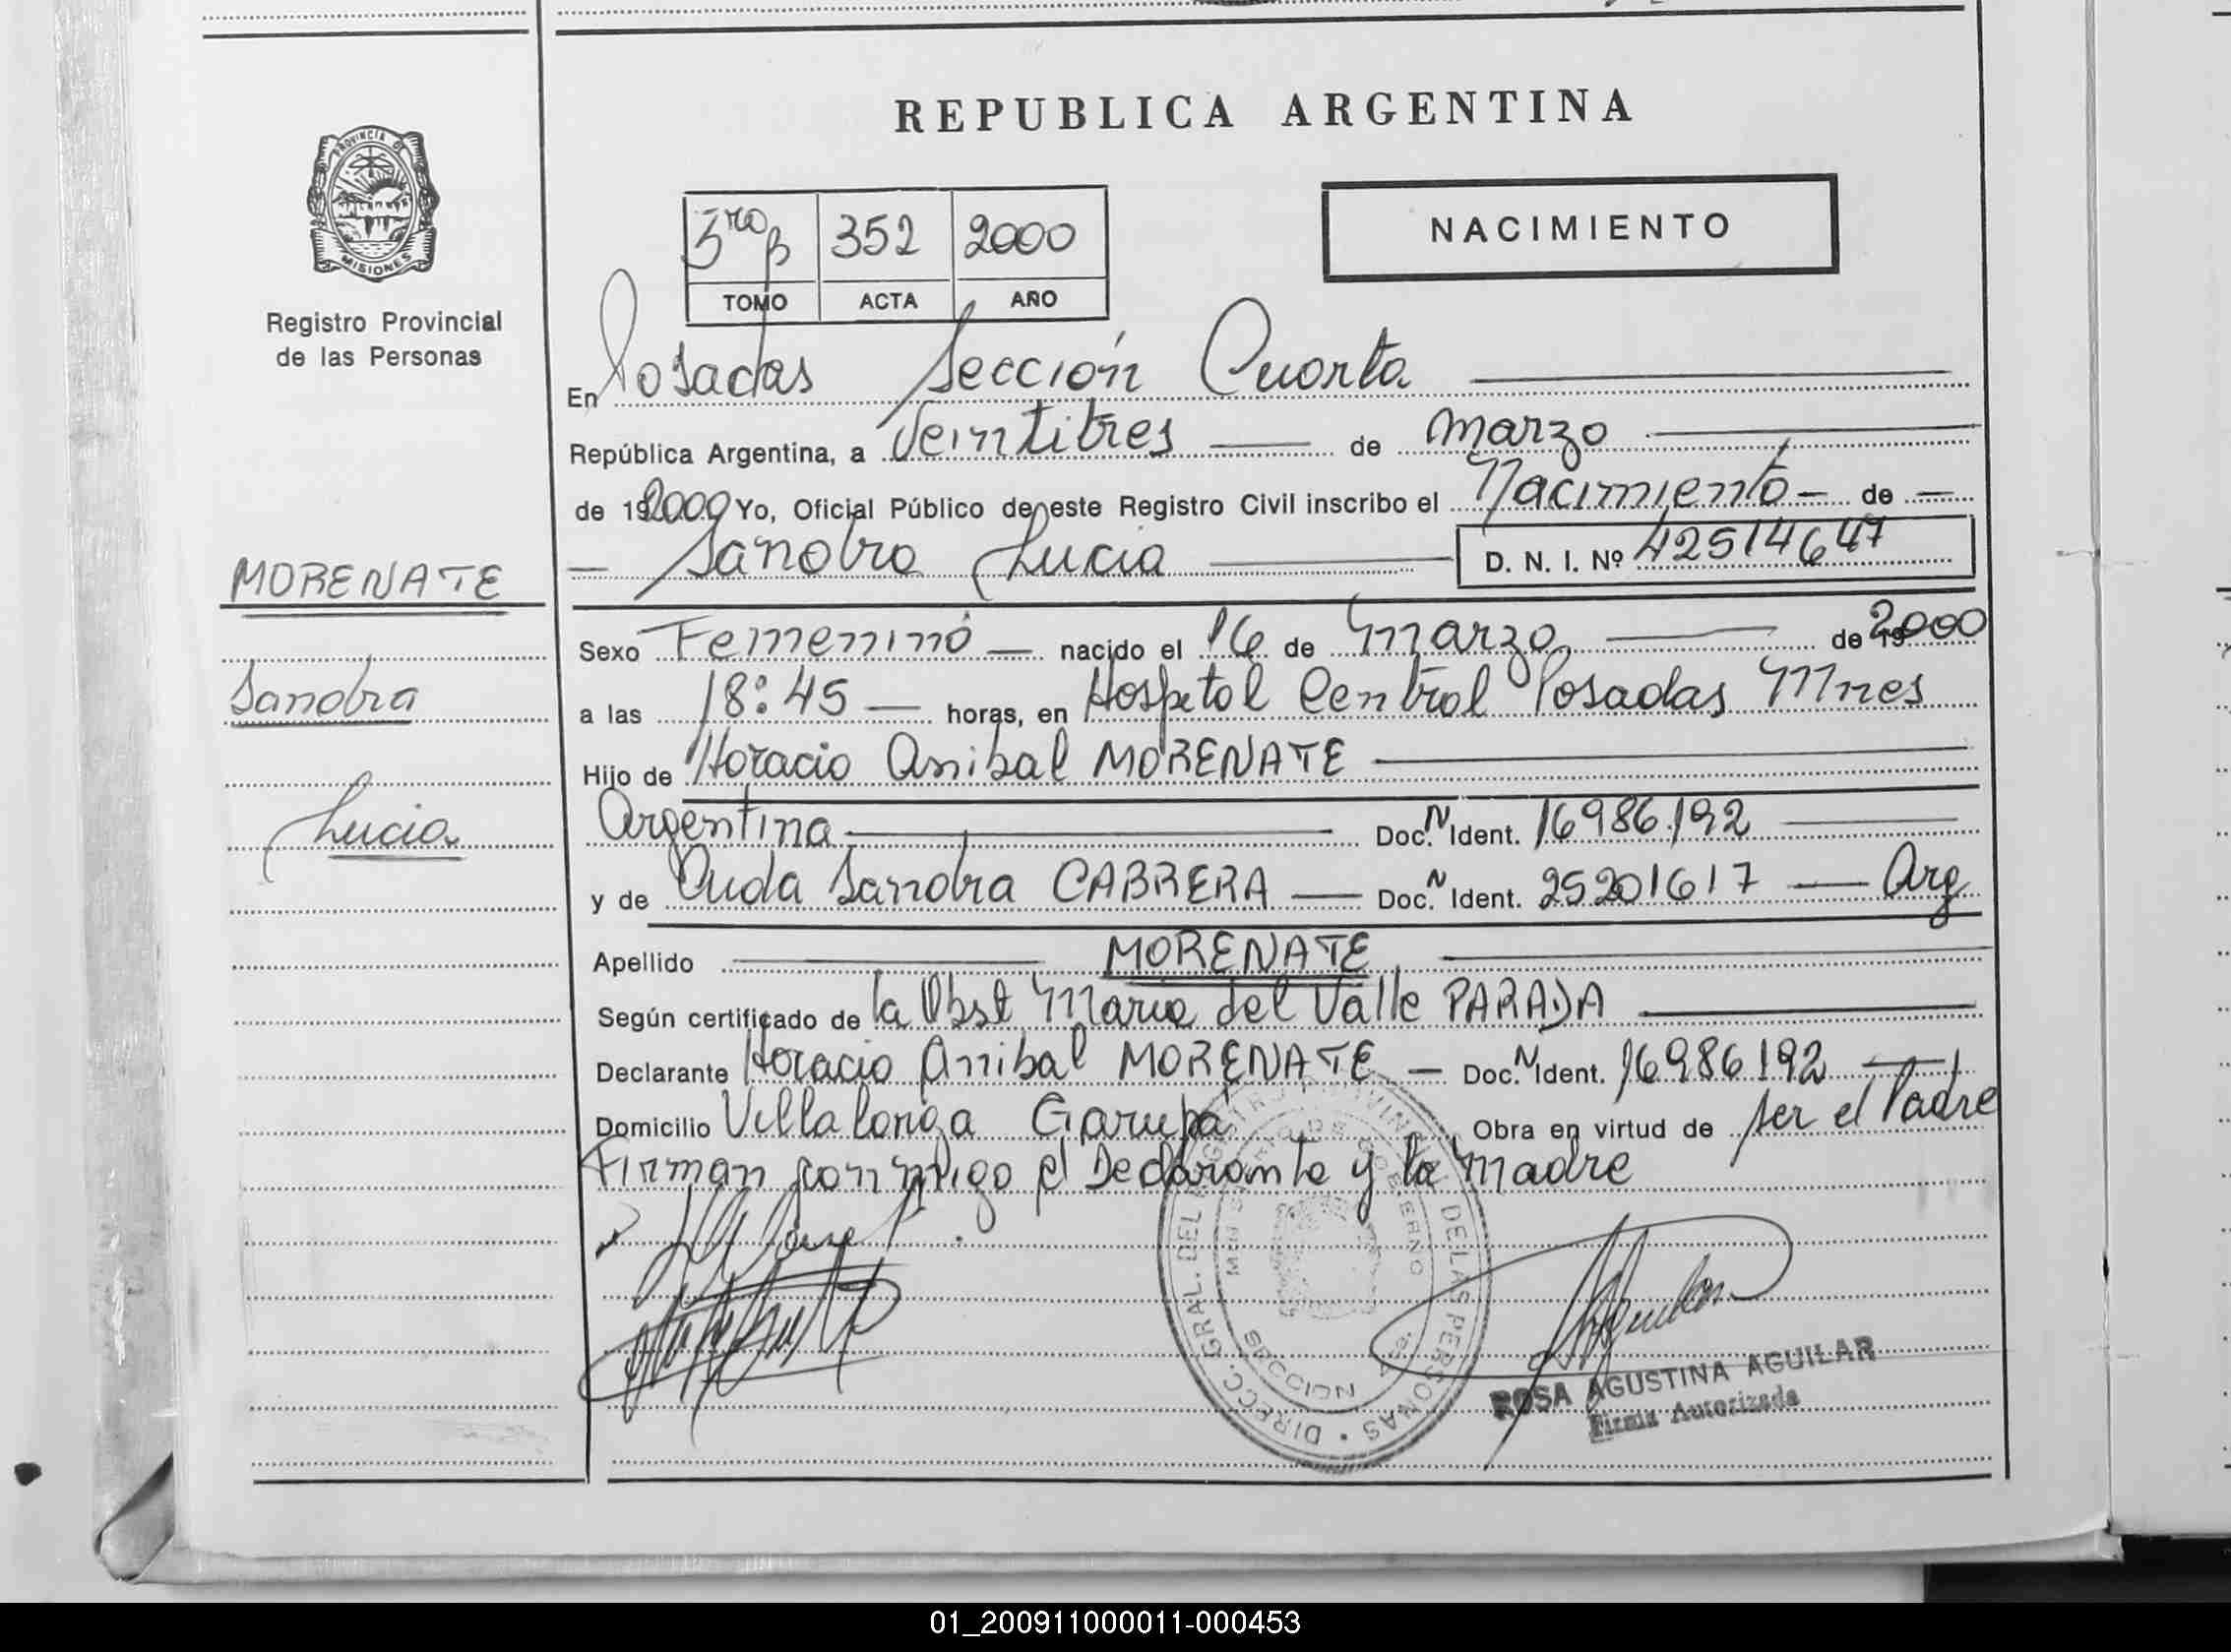 REPUBLICA ARGENTINA
PROVINCIA D
MISIONES
Registro Provincial
de las Personas
352 2000
TOMO ACTA AÑO
NACIMIENTO
En Posadas Sección Cuarta
República Argentina, a Veintitres de marzo
de 192000 Yo, Oficial Público de este Registro Civil inscribo el Nacimiento de
Sandra Lucia D. N. I. Nº 42514647
MORENATE
Sandra
Lucia
Sexo Femenino nacido el 16 de marzo de 19 2000
a las 18:45 horas, en Hospital Central Posadas Mnes
Hijo de Horacio Anibal MORENATE
Argentina Doc. N Ident. 16986192
y de Sandra CABRERA Doc. N Ident. 25201617 Arg
Apellido MORENATE
Según certificado de la Obst Maria del Valle PARADA
Declarante Horacio Anibal MORENATE Doc. N Ident. 16986192
Domicilio Villalonga Garupá Obra en virtud de ser el Padre
Firman conmigo el Declarante y la Madre
DIRECC. GRAL. DEL REGISTRO PROVINCIAL DE LAS PERSONAS
ROSA AGUSTINA AGUILAR
Firma Autorizada
01_200911000011-000453